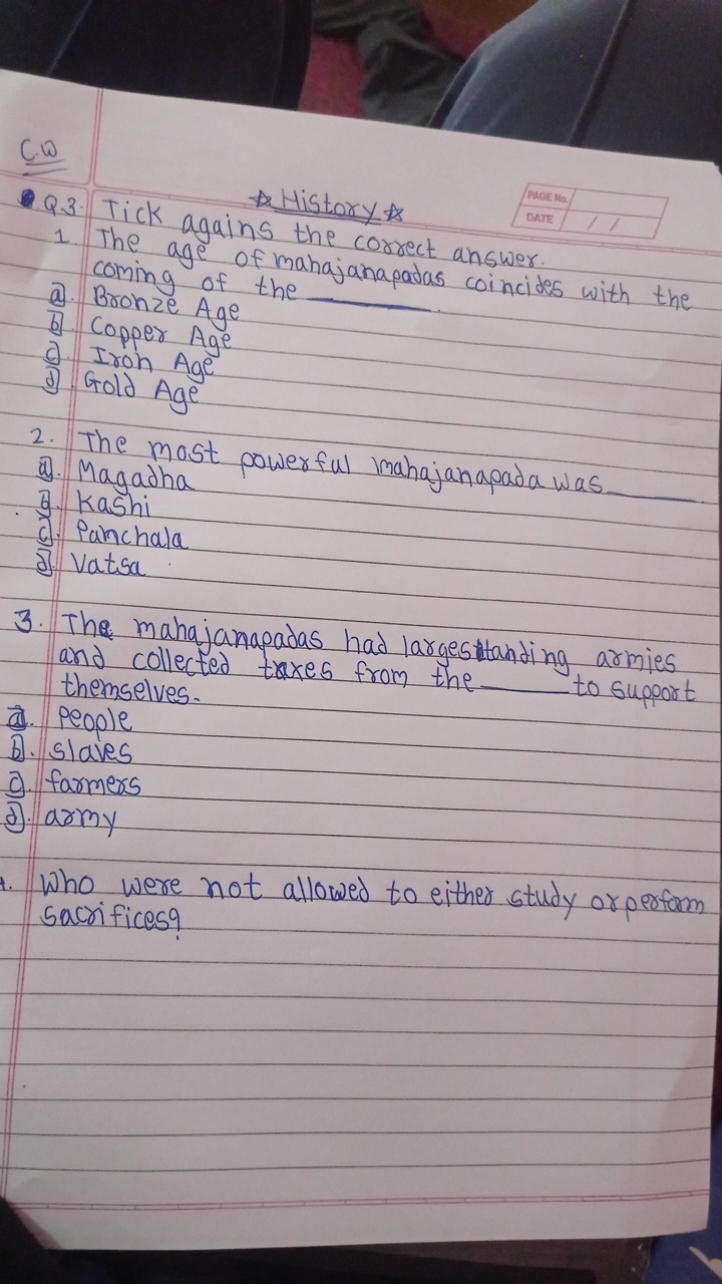 C.W
☆ History ☆
PAGE No.
DATE / /
Q.3. Tick agains the correct answer.
1. The age of mahajanapadas coincides with the
coming of the ________.
a. Bronze Age
b. Copper Age
c. Iron Age
d. Gold Age
2. The most powerful mahajanapada was ________.
a. Magadha
b. Kashi
c. Panchala
d. Vatsa
3. The mahajanapadas had large standing armies
and collected taxes from the ______ to support
themselves.
a. people
b. slaves
c. farmers
d. army
4. Who were not allowed to either study or perform
sacrifices?